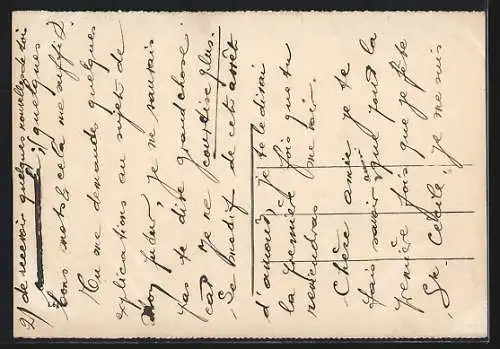 2/ de recevoir quelques nouvelles de toi
quelques
bons mots cela me suffit.
Tu me demandes quelques
explications au sujets de
mon futur, je ne saurais
pas te dire grand chose
car je ne courtise plus.
Le modif de cet arrêt
d'amour, je te le dirai
la première fois que tu
me
reviendras voir.
Chère amie je te
fais savoir aussi que pour la
première fois que je fête
Ste Cécile, je me suis